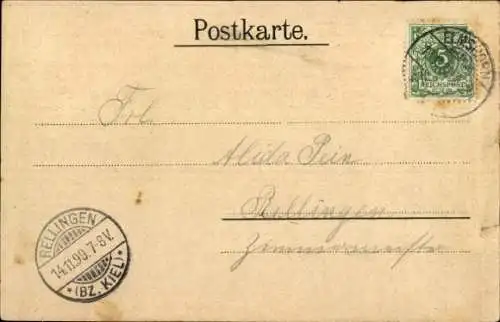 Postkarte.
ELMSHORN
5
REICHSPOST
Frl.
Alida Pein
Rellingen
Zimmermeister
RELLINGEN
14.11.99.7-8V.
*(BZ. KIEL)*